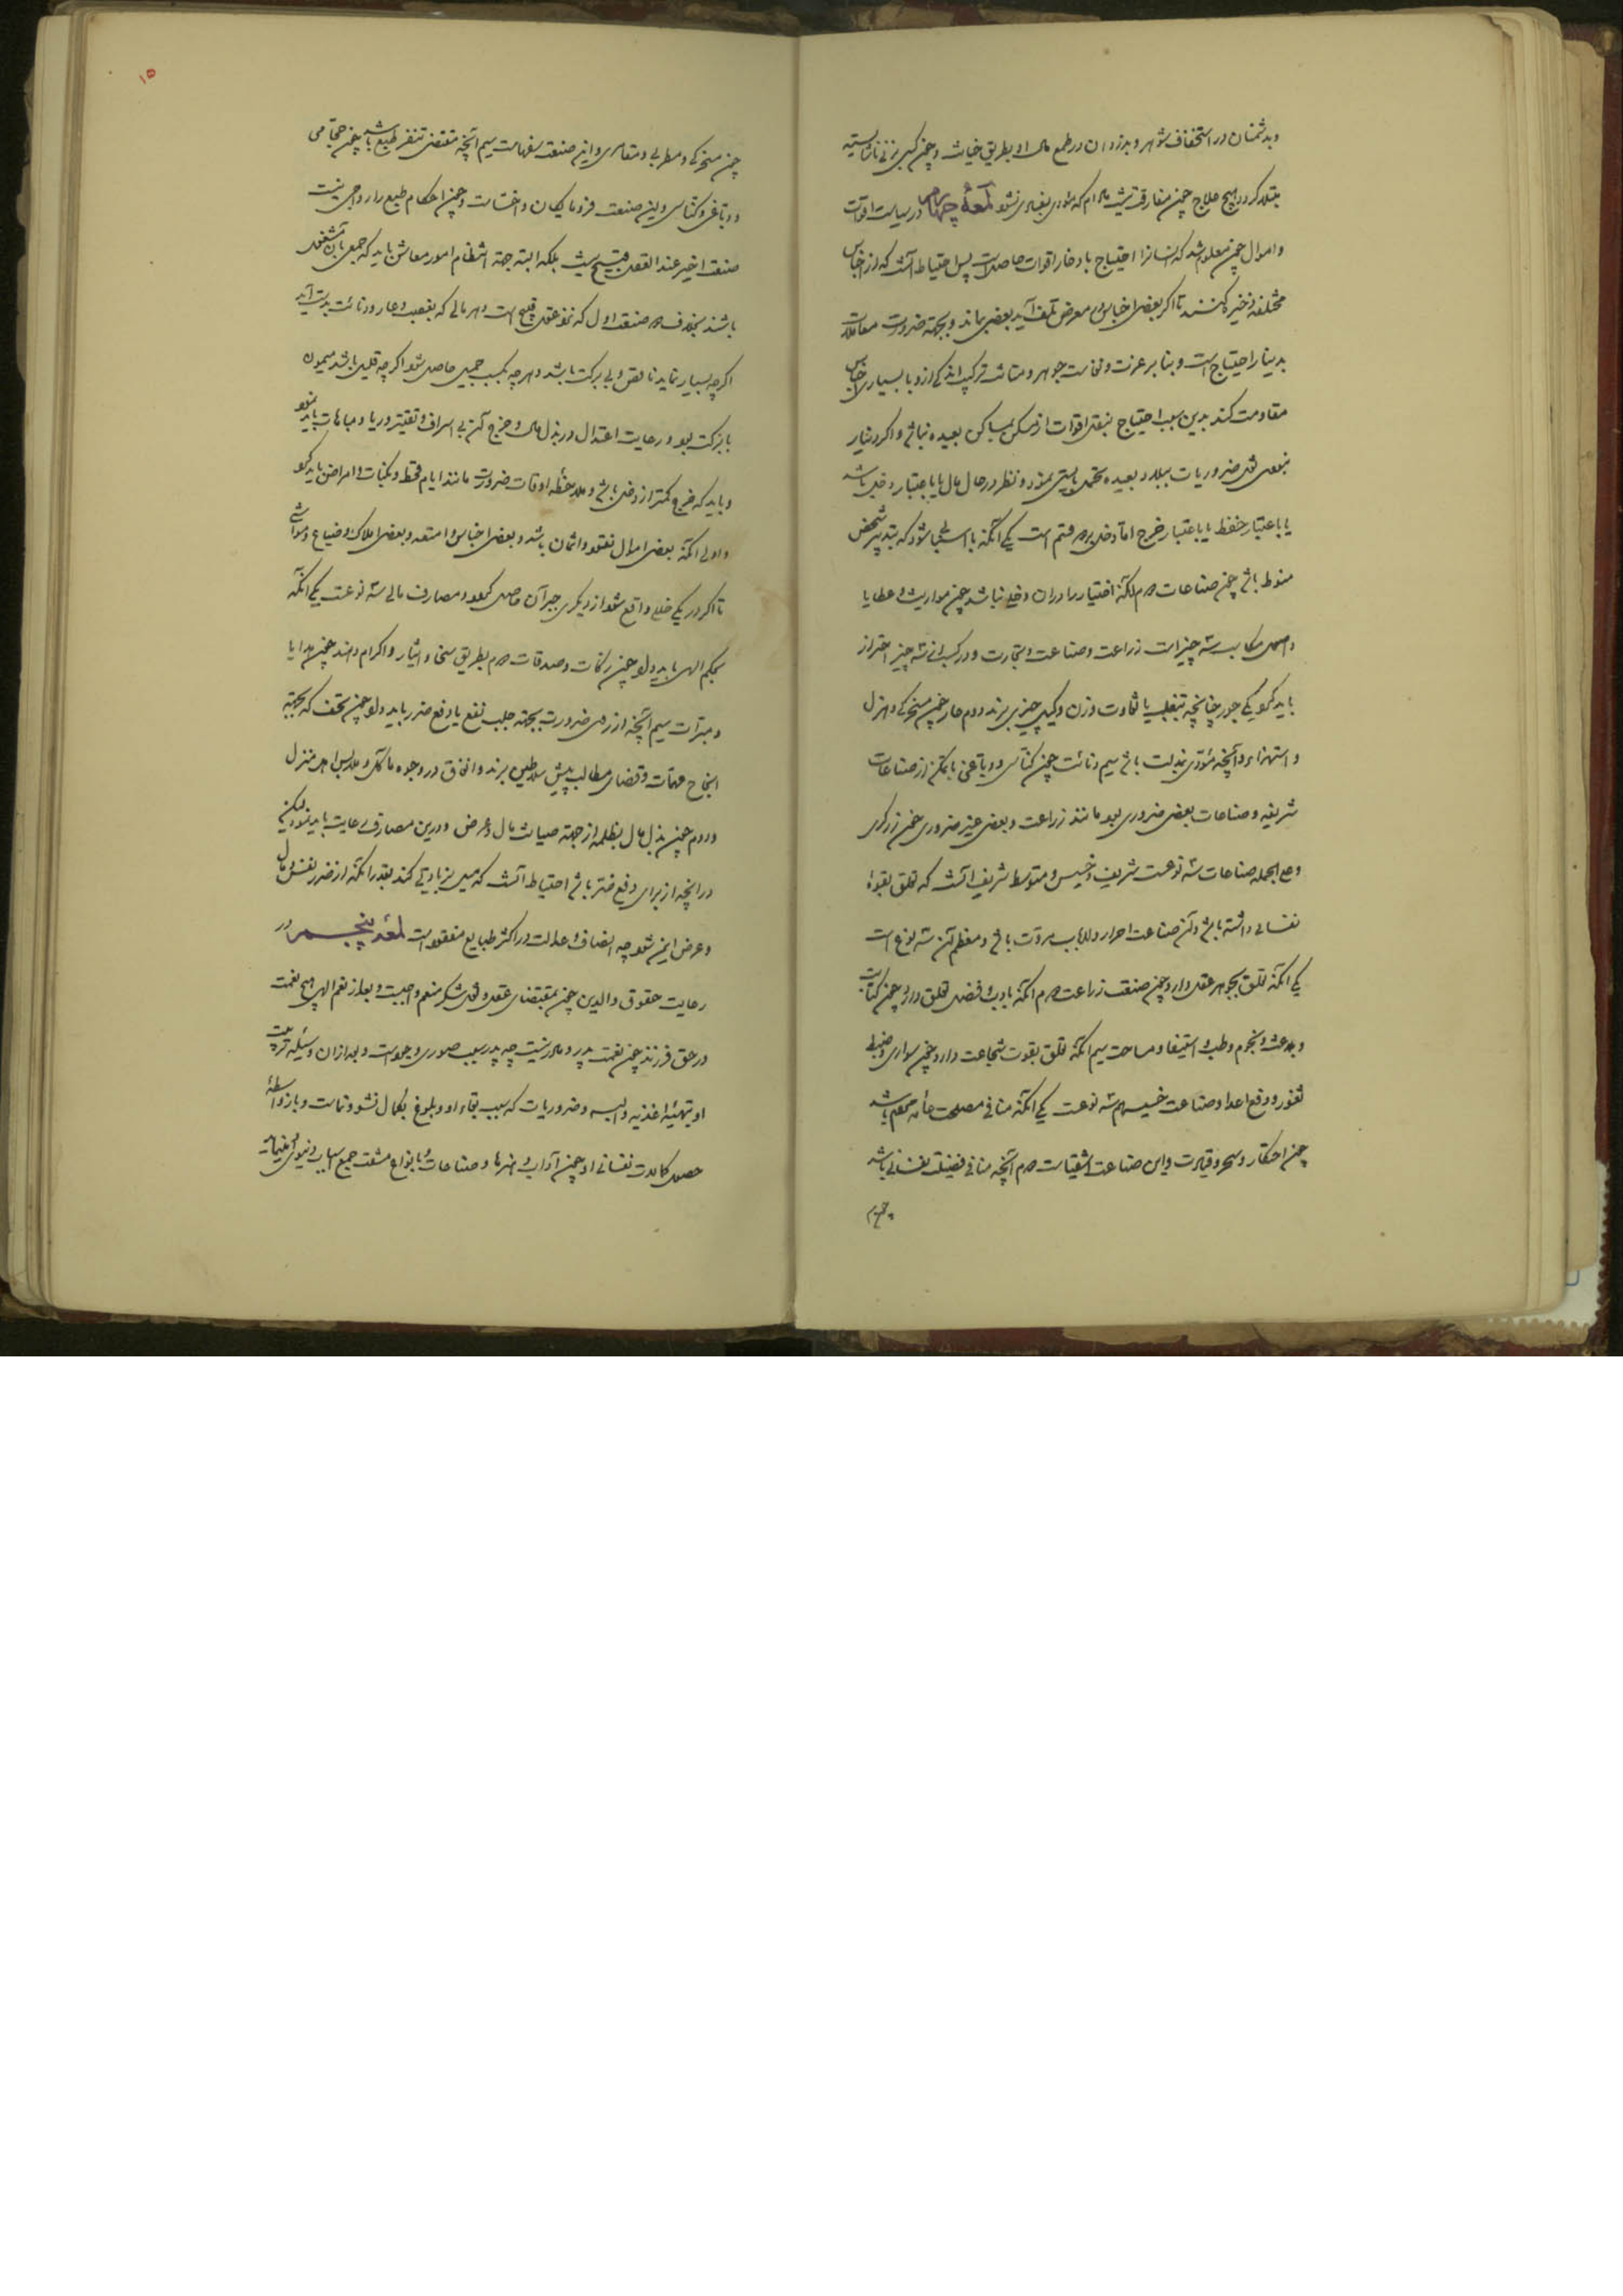 و بدشمنان در استخفاف شوهر و بدزدان در طمع مال او بطریق خیانت و چون کسی بزنی ناشایسته
مبتلا کردد هیچ علاج چون مفارقت نیست مادام که مؤدی بفسادی نشود لمعۀ چهارم در سیاست اقوات
و اموال چون معلوم شد که انسانرا احتیاج بادخار اقوات حاصلست پس احتیاط آنست که از اجناس
مختلفه ذخیره کنند تا اکر بعضی اجناس در معرض تلف آید بعضی بماند و بجهته ضرورت معاملات
بدینار احتیاج است و بنا بر عزت و نفاست جوهر و متانت ترکیب اندکی ازو با بسیاری اجناس
مقاومت کند بدین سبب احتیاج بنقل اقوات از مسکن بمساکن بعیده نباشد و اکر دینار
نبودی نقل ضروریات ببلاد بعیده تحمل بایستی نمود و نظر در حال مال یا باعتبار دخل باشد
یا باعتبار حفظ یا باعتبار خرج اما دخل بر دو قسم است یکی آنکه باسبابی شود که بتدبیر شخص
منوط باشد چون صناعات دوم آنکه اختیار را در آن دخلی نباشد چون مواریث و عطایا
و اصول مکاسب سه چیز است زراعت و صناعت و تجارت و در کسب از سه چیز احتراز
باید کرد یکی جور چنانچه بتغلب یا تفاوت وزن و کیل چیزی برند دوم عار چون مسخرکی و هزل
و استهزاء و آنچه مؤدی بمذلت باشد سیم دنائت چون کناسی و دباغی با تمکن از صناعات
شریفه و صناعات بعضی ضروری بود مانند زراعت و بعضی غیر ضروری چون زرکری
و علی الجمله صناعات سه نوعست شریف و خسیس و متوسط شریف آنست که تعلق بقوۀ
نفسانی داشته باشد و آن صناعت احرار و ارباب مروت باشد و معظم آن سه نوع است
یکی آنکه تعلق بجوهر عقل دارد چون صنعت زراعت دوم آنکه بادب و فضل تعلق دارد چون کتابت
و بلاغت و نجوم و طب و استیفا و مساحت سیم آنکه تعلق بقوت شجاعت دارد چون سواری و ضبط
ثغور و دفع اعدا و صناعت خسیس هم سه نوعست یکی آنکه منافی مصلحت عامه مردم باشد
چون احتکار و سحر و قیادت و این صناعت اشقیاست دوم آنچه منافی فضیلت نفسانی باشد
چون مسخرکی و مطربی و مقامری و این صنعت سفهاست سیم آنچه مقتضی تنفر طبع باشد چون حجامی
و دباغی و کناسی و این صنعت فرومایکان و اخسا است و چون احکام طبع را رواجی نیست
صنعت اخیر عند العقل قبیح نیست بلکه البته جهت انتظام امور معاش باید که جمعی بآن مشغول
باشند بخلاف دو صنعت اول که نزد عقل قبیح است و هر مالی که بغصب و عار و دنائت بدست آید
اکرچه بسیار نماید ناقص و بی برکت باشد و هر چه بکسب جمیل حاصل شود اکرچه قلیل باشد میمون
با برکت بود و رعایت اعتدال در بذل مال و خرج آن بی اسراف و تقتیر و ریا و مباهات باید نمود
و باید که خرج کمتر از دخل باشد و ملاحظه اوقات ضرورت مانند ایام قحط و نکبات و امراض باید کرد
و اولی آنکه بعضی اموال نقود و اثمان باشد و بعضی اجناس و امتعه و بعضی املاک و ضیاع و مواشی
تا اکر در یکی خللی واقع شود از دیکری جبر آن حاصل کردد و مصارف مالی سه نوعست یکی آنکه
بحکم الهی باید داد چون زکات و صدقات دوم بطریق سخا و ایثار و اکرام دهند چون هدایا
و مبرات سیم آنچه از روی ضرورت بجهته جلب نفع یا دفع ضرر باید داد چون تحف که بجهته
انجاح مهمات و قضای مطالب پیش سلاطین برند و انفاق در وجوه مآکل و ملابس اهل منزل
و دوم چون بذل مال بظلمه از جهته صیانت مال و عرض و درین مصارف رعایت باید نمود لیکن
در آنچه از برای دفع ضرر باشد احتیاط آنست که میل بزیادتی کند بقدر آنکه از ضرر نفس و مال
و عرض ایمن شود چه انصاف و عدالت در اکثر طبایع مفقود است لمعۀ پنجم در
رعایت حقوق والدین چون بمقتضای عقل و نقل شکر منعم واجبست و بعد از نعم الهی هیچ نعمت
در حق فرزند چون نعمت پدر و مادر نیست چه پدر سبب صوری وجود است و بعد از آن وسیله تربیت
او بتهیئه اغذیه و البسه و ضروریات که سبب بقاء او و بلوغ بکمال نشو و نماست و باز واسطۀ
حصول کمالات نفسانی او چون آداب و هنرها و صناعات و با انواع مشقت جمع اسباب دنیوی